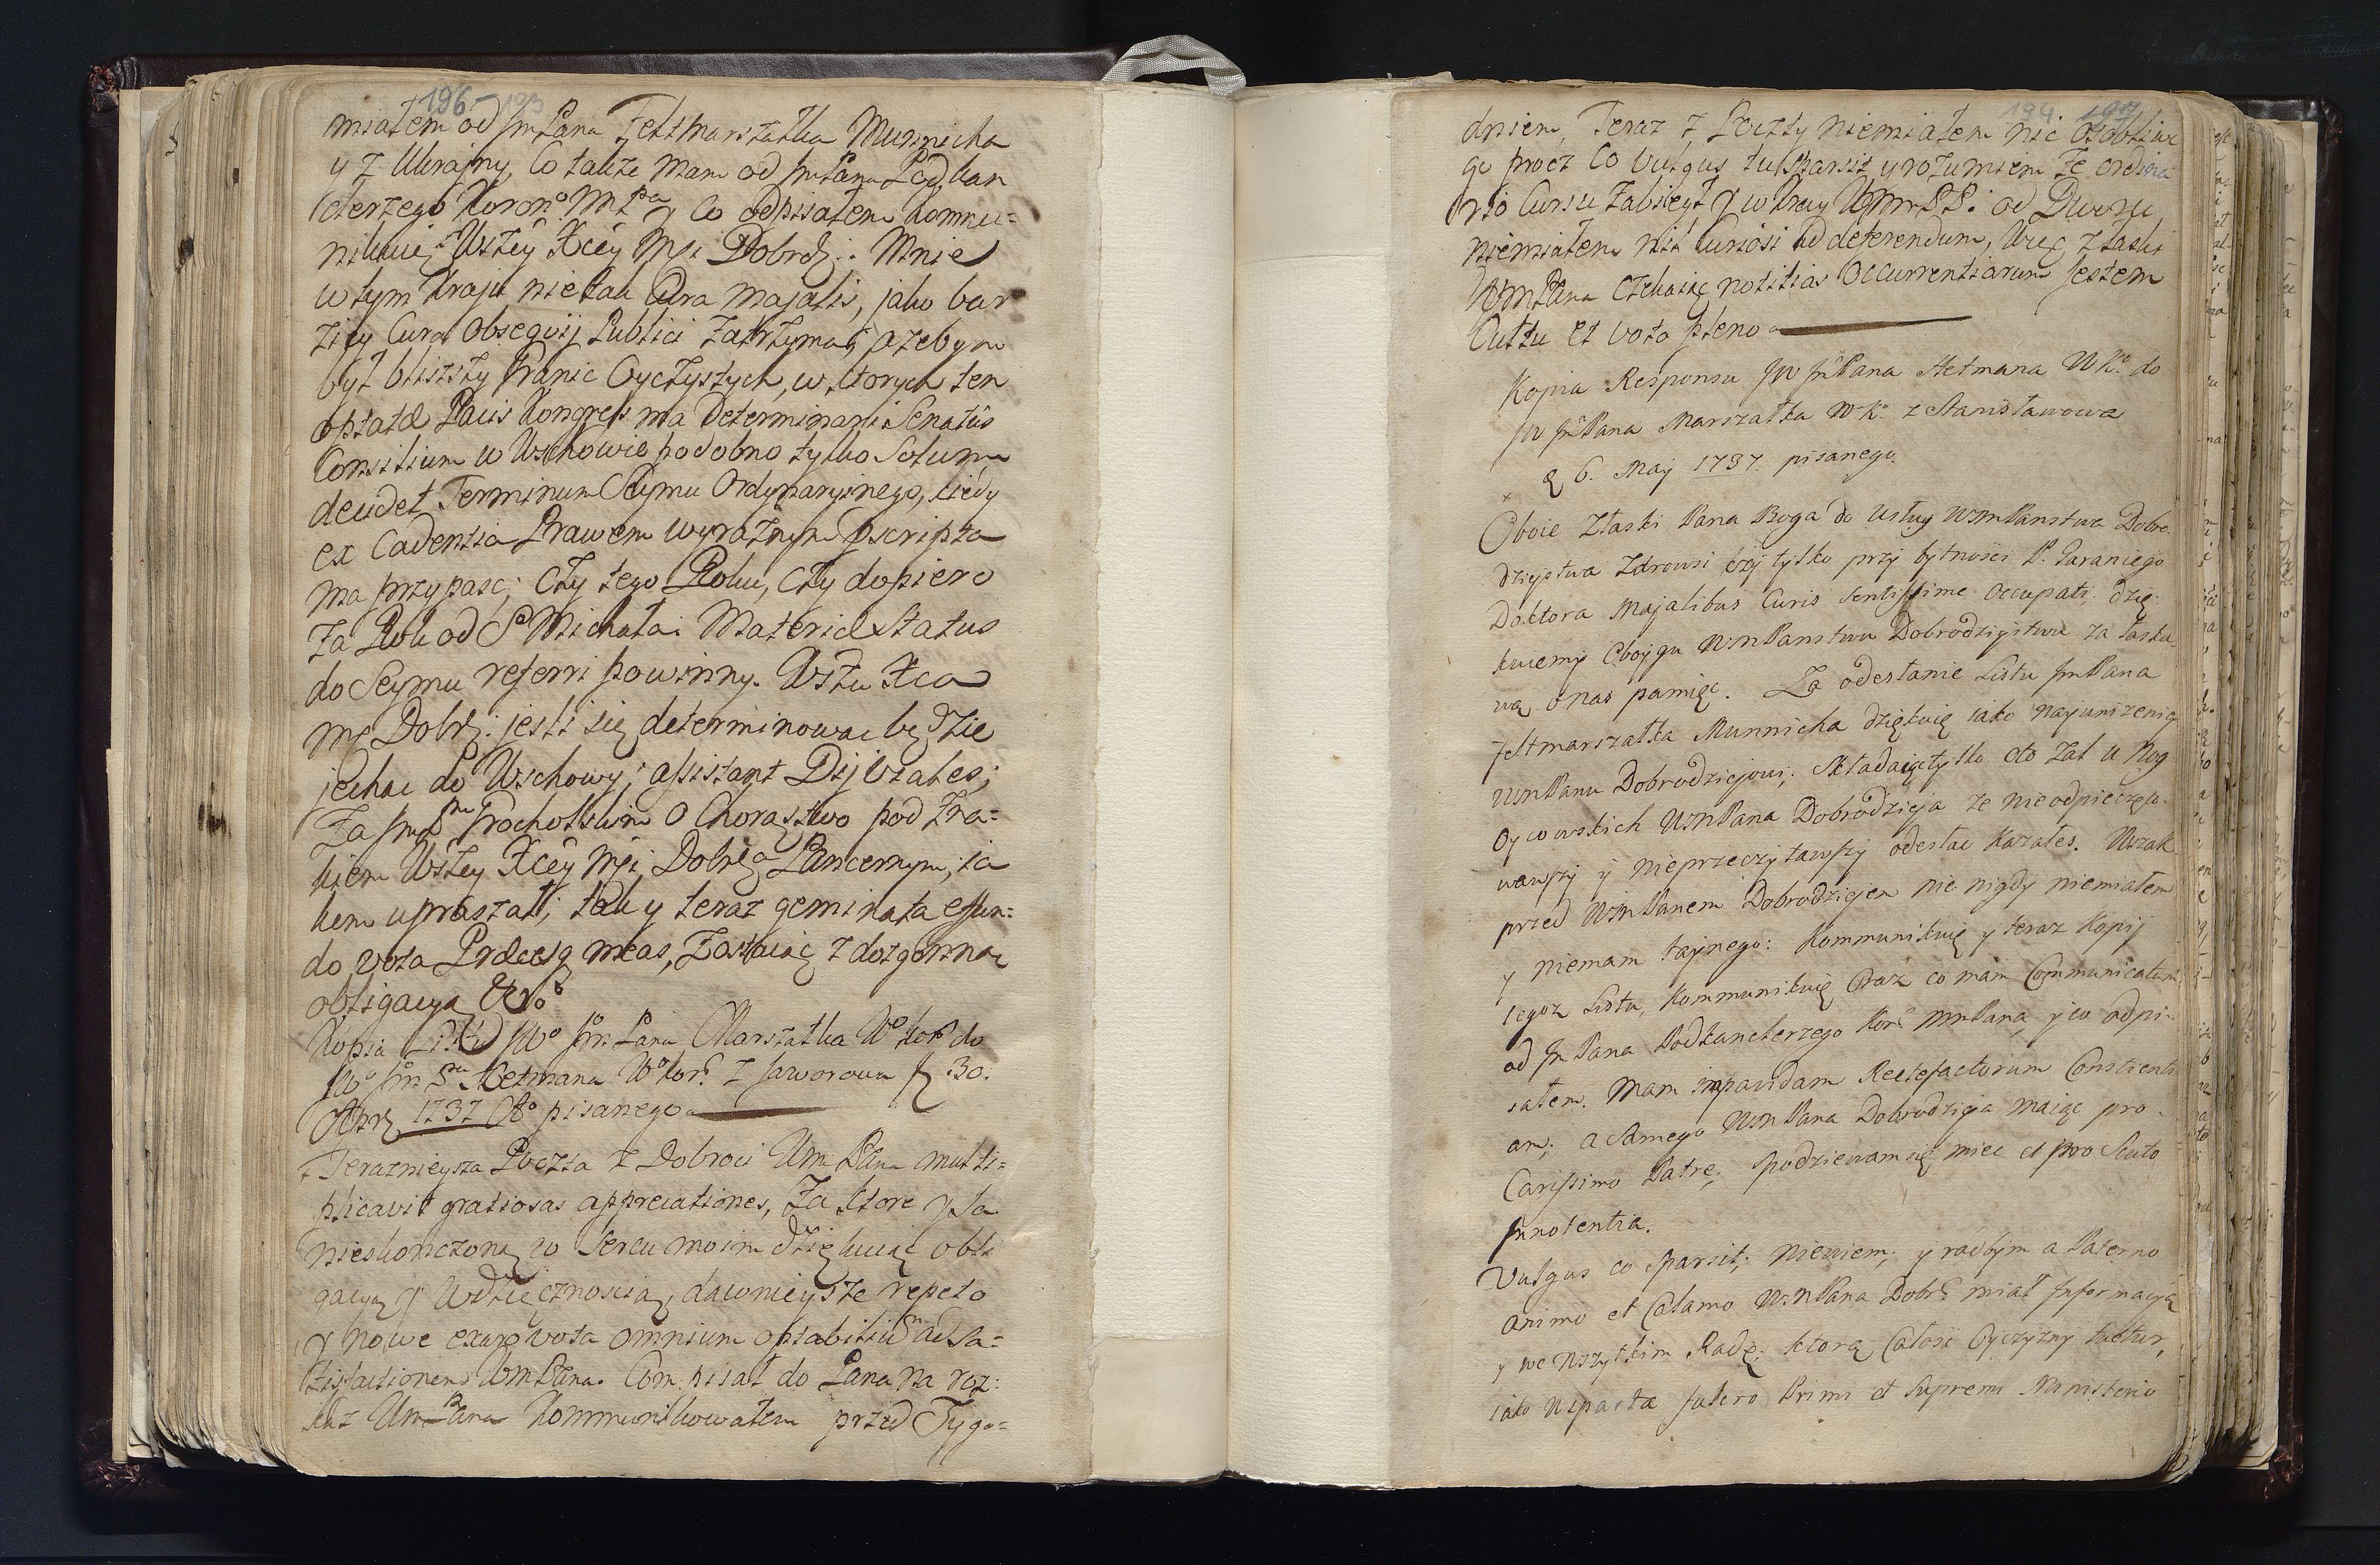 196 193
miałem od JmPana Feltmarszałka Munnicha
y z Ukrainy, Co także mam od JmPana Podkan
clerzego Koron: y Co odpisałem kommu=
nikuię Wszey Xcey Mći Dobrdz: Mnie
w tym kraju nie tak Cura Majalis, jako bar
ziey Cura Obsequij Publici zatrzymać azebym
był bliższy Granic Oyczystych, w ktorych ten
optatae Pacis Kongress ma determinari Senatus
Consilium w Wschowie podobno tylko Solum
deudet Terminum Seymu Ordynaryinego, kiedy
ex Cadentia Prawem wyraznym pscripta
ma przypaść; Czy tego Roku, Czy dopiero
za Rok od S. Michała: Materiae Status
do Seymu referri powinny. Wszu Xca
mć Dobrdz: jesli się determinować będzie
jechac do Wschowy; assistant Dij Vzates;
Za Jmć Prochotskim o Chorąstwo pod zna=
kiem Wszey Xcey Mći Dobrdza Pancernym, ia
kem upraszał; tak y teraz geminata effun=
do vota Precesq meas, zostaiąc z dozgonną
obligacyą
Kopia Listu JWo Jm Pana Marszałka Wo Kor do
JWo Jm Pna Hetmana Wo Kor: z Jaworowa 30.
Apr 1737 Ao pisanego
Teraznieysza Poczta z Dobroci Wm Pana multi=
plicavit gratiosas appreciationes, za ktore y Ja
nieskonczoną w Sercu moim dziękuiąc obli
gacyą y Wdzięcznoscią, dawnieysze repeto
y nowe vota omnium optabiliu ad sa=
tisfactionem WmPana. Com pisał do Pana na roz:
kaz Wm Pana Kommunikowałem przed Tygo=
194 197
dniem, Teraz z Poczty niemiałem nic osobliwe
go procz Co vulgus tu sparsit y rozumiem ze ordina
rio Cursu zabieży y w kray WmPP: od Dworu
niemiałem nic Curiosi ad deferendum, Więc z łaski
WmPana czekaiąc notitias Occurrentiarum Jestem
Cultu et voto pleno
Kopia Responsu JW JmPana Hetmana W K: do
JW JmPana Marszałka W K: z Stanisławowa
d 6. Maij 1737. pisanego.
Oboie z łaski Pana Boga do usług WmPanstwa Dobro
dzieystwa zdrowi czyj tylko przy bytności P. Garaniego
Doktora Majalibus Curis sentissime occupati; dzię:
kuiemy Oboygu WmPanstwu Dobrodzieystwu za łaska
wą o nas pamięć. Za odesłanie Listu JmPana
Feltmarszałka Munnicha dziękuię iako nayunizeniey
WmPanu Dobrodziejowi; składaiąc tylko oto zal u nog
Oycowskich WmPana Dobrodzieja ze nieodpieczęto=
wawszy y nieprzeczytawszy odesłac kazałes. Wszak
przed WmPanem Dobrodziejem nic nigdy niemiałem
y niemam taynego: Kommunikuię y teraz Kopij
tegoz Listu, Kommunikuię oraz co mam Communicatum
od Jm Pana Podkanclerzego Kor: MmPana y co odpi=
sałem. Mam impavidam Rectefactorum Conscienti
am; a Samego WmPana Dobrodzieja maiąc pro
Carissimo Patre; spodziewam się miec et pro Scuto
Innotentia.
Vulgus co sparsit; niewiem; y radbym a Paterno
animo et Calamo WmPana Dobr: miał Informacyą
y we wszytkim Radę; ktorą Całość Oyczyzny
iako wsparta fulcro Primi et Supremi Ministerio